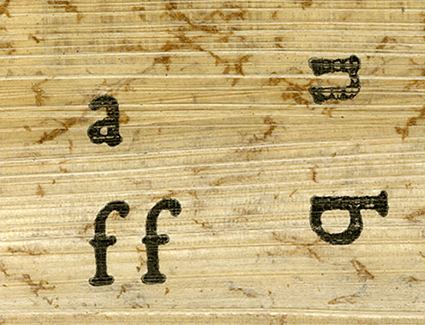 a
n
ff
b